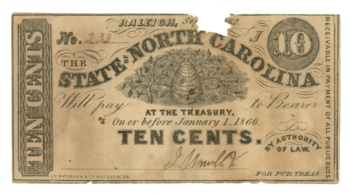 RALEIGH,
No.
10
THE
STATE OF NORTH CAROLINA
Will pay to Bearer
AT THE TREASURY,
On or before January 1, 1866.
TEN CENTS.
BY AUTHORITY
OF LAW.
FOR PUB. TREAS.
TEN CENTS
RECEIVABLE IN PAYMENT OF ALL PUBLIC DUES